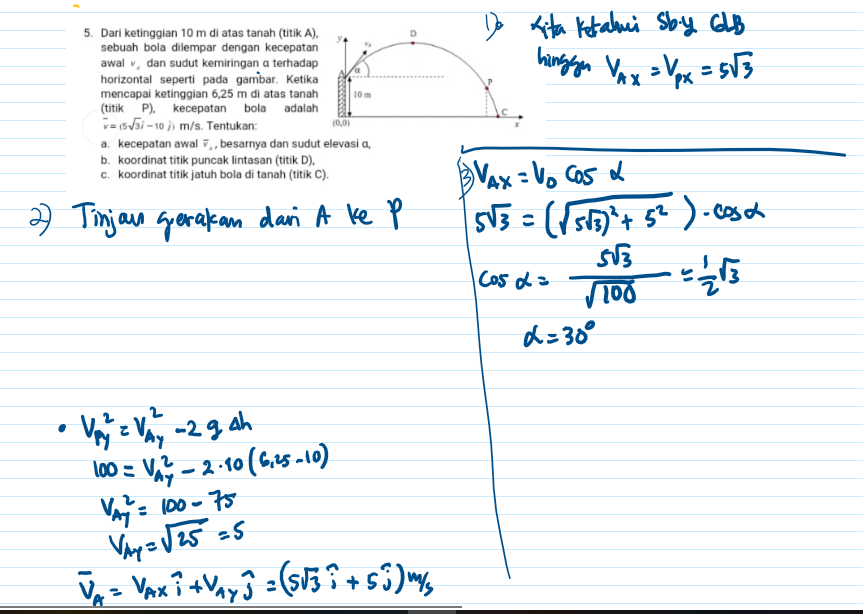 5. Dari ketinggian 10 m di atas tanah (titik A),
sebuah bola dilempar dengan kecepatan
awal v⃗ₐ dan sudut kemiringan α terhadap
horizontal seperti pada gambar. Ketika
mencapai ketinggian 6,25 m di atas tanah
(titik P), kecepatan bola adalah
v̄ = (5√3i −10 j) m/s. Tentukan:
a. kecepatan awal v̄ₐ, besarnya dan sudut elevasi α,
b. koordinat titik puncak lintasan (titik D),
c. koordinat titik jatuh bola di tanah (titik C).
y
A
α
D
P
10 m
C
(0,0)
x
1)
Kita ketahui sb-y GLB
hingga V_Ax = V_px = 5√3
2) Tinjau gerakan dari A ke P
• V_Py² = V_Ay² − 2 g Δh
100 = V_Ay² − 2·10 (6,25 −10)
V_Ay² = 100 − 75
V_Ay = √25 = 5
V̄_A = V_Ax î + V_Ay ĵ = (5√3 î + 5 ĵ) m/s
3) V_AX = V_0 cos α
5√3 = (√(5√3)² + 5²) · cos α
cos α = 5√3 / √100 = 1/2 √3
α = 30°